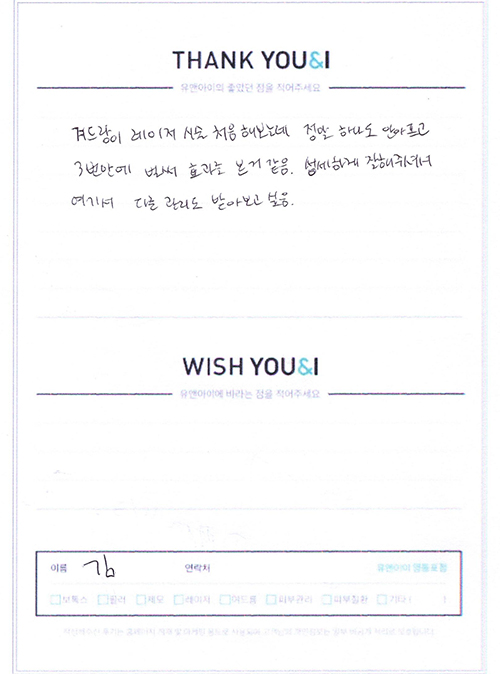 THANK YOU&I
유앤아이의 좋았던 점을 적어주세요
겨드랑이 레이저 시술 처음 해보는데 정말 하나도 안아프고
3번만에 벌써 효과를 본거 같음. 섬세하게 잘해주셔서
여기서 다른 관리도 받아보고 싶음.
WISH YOU&I
유앤아이에 바라는 점을 적어주세요
이름 김 연락처 유앤아이의
보톡스 필러 제모 레이저 여드름 피부관리 피부질환 기타 ( )